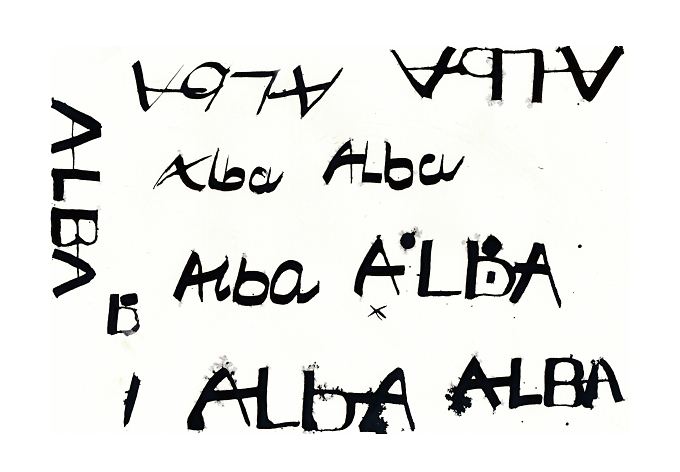 AlbA ALbA
ALBA
Alba ALba
Alba ALBA
B
ALbA ALBA